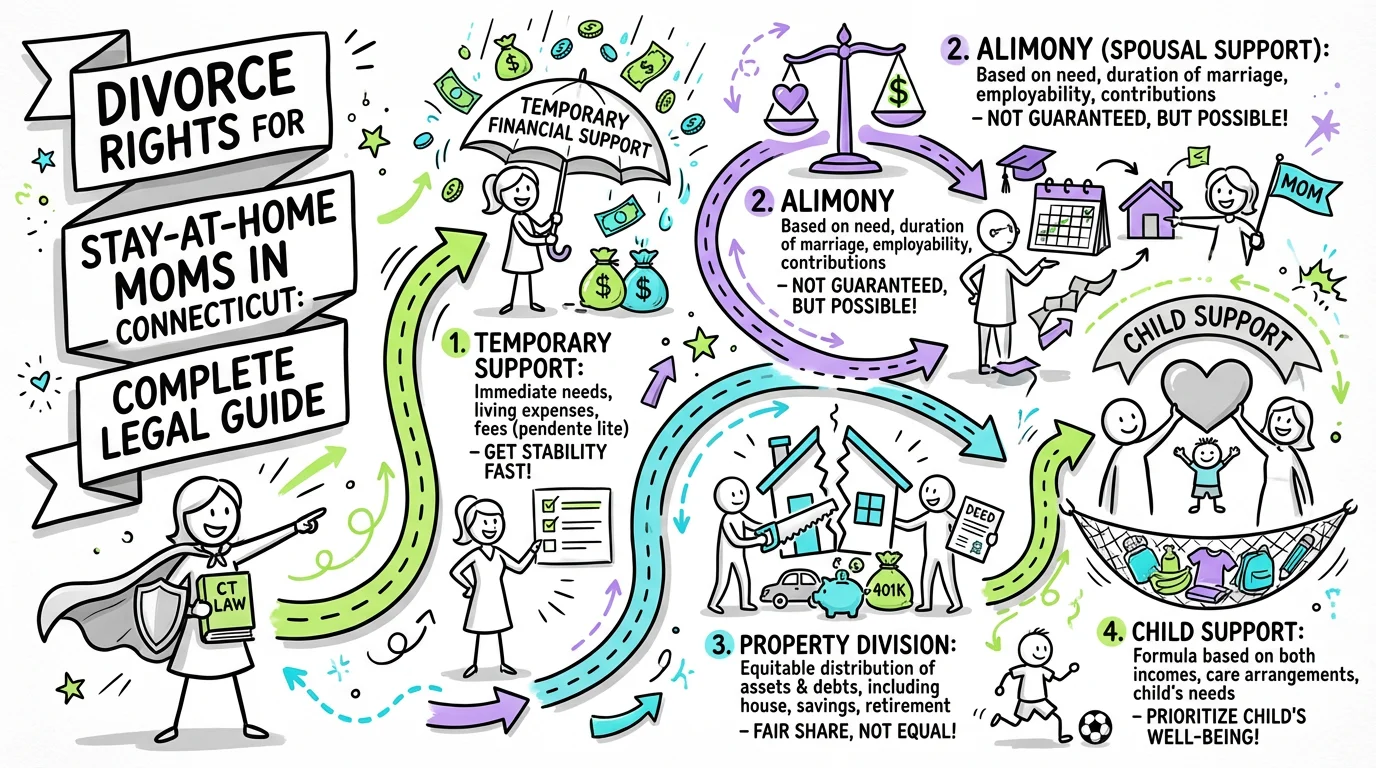 DIVORCE
RIGHTS FOR
STAY-AT-HOME
MOMS IN
CONNECTICUT:
COMPLETE
LEGAL GUIDE
CT
LAW
TEMPORARY
FINANCIAL SUPPORT
$
$
$
1. TEMPORARY
SUPPORT:
Immediate needs,
living expenses,
fees (pendente lite)
– GET STABILITY
FAST!
$
2. ALIMONY (SPOUSAL SUPPORT):
Based on need, duration of marriage,
employability, contributions
– NOT GUARANTEED, BUT POSSIBLE!
2. ALIMONY
Based on need, duration
of marriage, employability,
contributions
– NOT GUARANTEED,
BUT POSSIBLE!
MOM
DEED
401K
3. PROPERTY DIVISION:
Equitable distribution of
assets & debts, including
house, savings, retirement
– FAIR SHARE, NOT EQUAL!
CHILD SUPPORT
4. CHILD SUPPORT:
Formula based on both
incomes, care arrangements,
child's needs
– PRIORITIZE CHILD'S
WELL-BEING!